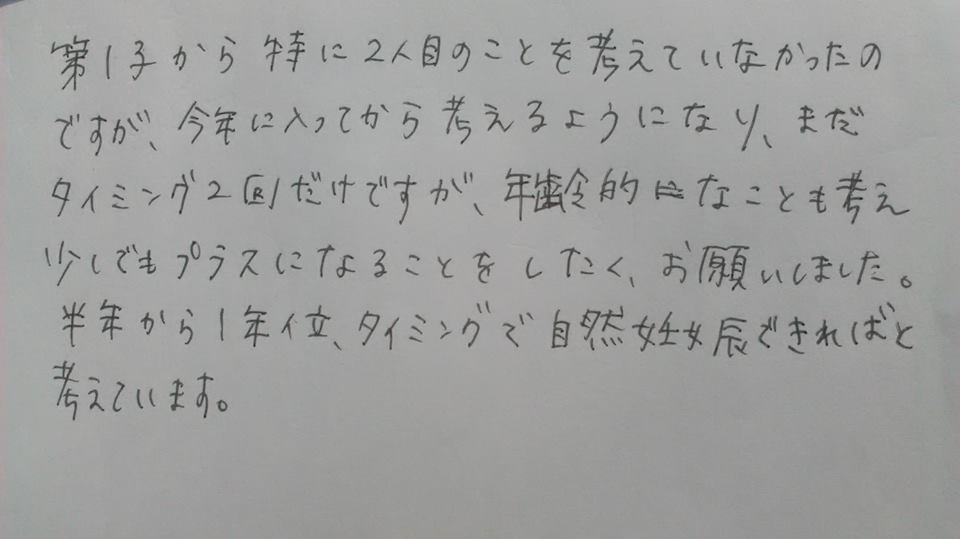 第1子から特に2人目のことを考えていなかったの
ですが、今年に入ってから考えるようになり、まだ
タイミング2回だけですが、年齢的なことも考え
少しでもプラスになることをしたく、お願いしました。
半年から1年位、タイミングで自然妊娠できればと
考えています。